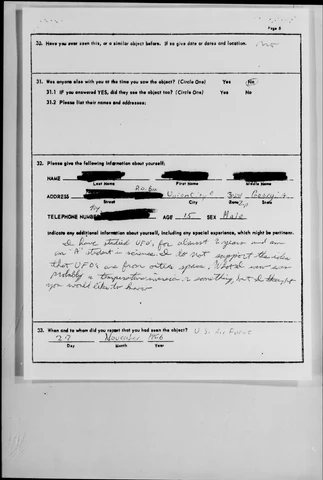 Page 6
30. Have you ever seen this, or a similar object before. If so give date or dates and location. No
31. Was anyone else with you at the time you saw the object? (Circle One) Yes No
31.1 If you answered YES, did they see the object too? (Circle One) Yes No
31.2 Please list their names and addresses:
32. Please give the following information about yourself:
NAME
Last Name First Name Middle Name
ADDRESS
Street City Zone State
TELEPHONE NUMBER AGE 15 SEX Male
Indicate any additional information about yourself, including any special experience, which might be pertinent.
I have studied UFO's for almost 2 years and am
an "A" student in science. I do not support the idea
that UFO's are from outer space. What I now saw
probably a temperature inversion or something, but I thought
you would like to know
33. When and to whom did you report that you had seen the object? U.S. Air Force
27 November 1966
Day Month Year